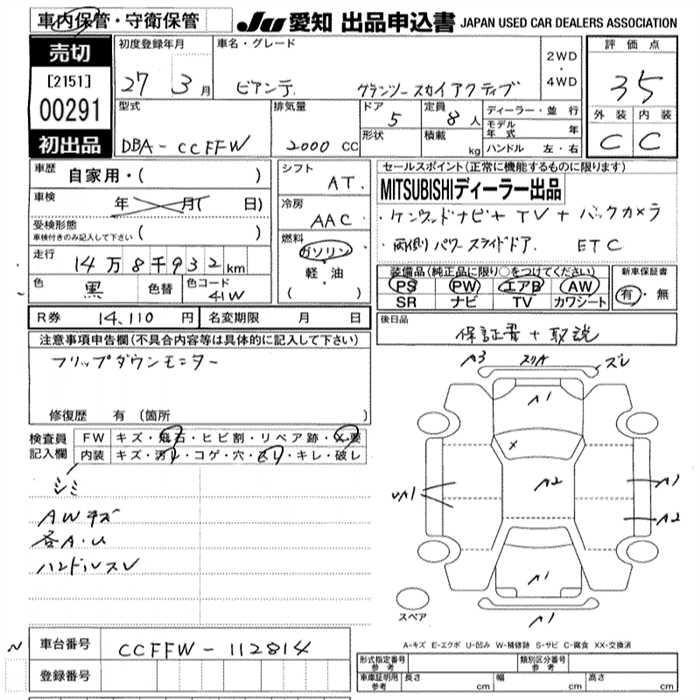 車内保管・守衛保管
JU 愛知 出品申込書 JAPAN USED CAR DEALERS ASSOCIATION
売切
[2151]
00291
初出品
初度登録年月
27 3月
車名・グレード
ビアンテ グランツースカイアクティブ
2WD
・
4WD
評価点
3.5
外装 内装
C C
型式
DBA-CCFFW
排気量
2000 CC
ドア
5
定員
8人
形状
積載
kg
ディーラー・並行
モデル年式 年
ハンドル 左・右
車歴 自家用・( )
車検 年 月( 日)
受検形態
車検付きのみ記入して下さい ( )
走行 14万8千932km
色 黒 色替 色コード 41W
シフト
AT.
冷房
AAC
燃料
ガソリン
軽・油
( )
セールスポイント(正常に機能するものに限ります)
MITSUBISHIディーラー出品
・ケンウッドナビ+TV+バックカメラ
・両側パワースライドドア. ETC
装備品(純正品に限り○をつけてください)
PS PW エアB AW
SR ナビ TV カワシート
新車保証書
有・無
R券 14,110円 名変期限 月 日
後日品
保証書+取説
注意事項申告欄(不具合内容等は具体的に記入して下さい)
フリップダウンモニター
修復歴 有 (箇所 )
検査員
記入欄
FW キズ・飛石・ヒビ割・リペア跡・X要
内装 キズ・汚レ・コゲ・穴・スレ・キレ・破レ
シミ
AWキズ
各A・U
ハンドルスレ
A3 スリキ ズレ
A1
X
A2
UA1
A1
A2
A1
A1
スペア
A-キズ E-エクボ U-凹み W-補修跡 S-サビ C-腐食 XX-交換済
車台番号 CCFFW-112814
登録番号
形式指定番号
参考
類別区分番号
参考
車庫証明用
参考
長さ cm 幅 cm 高さ cm